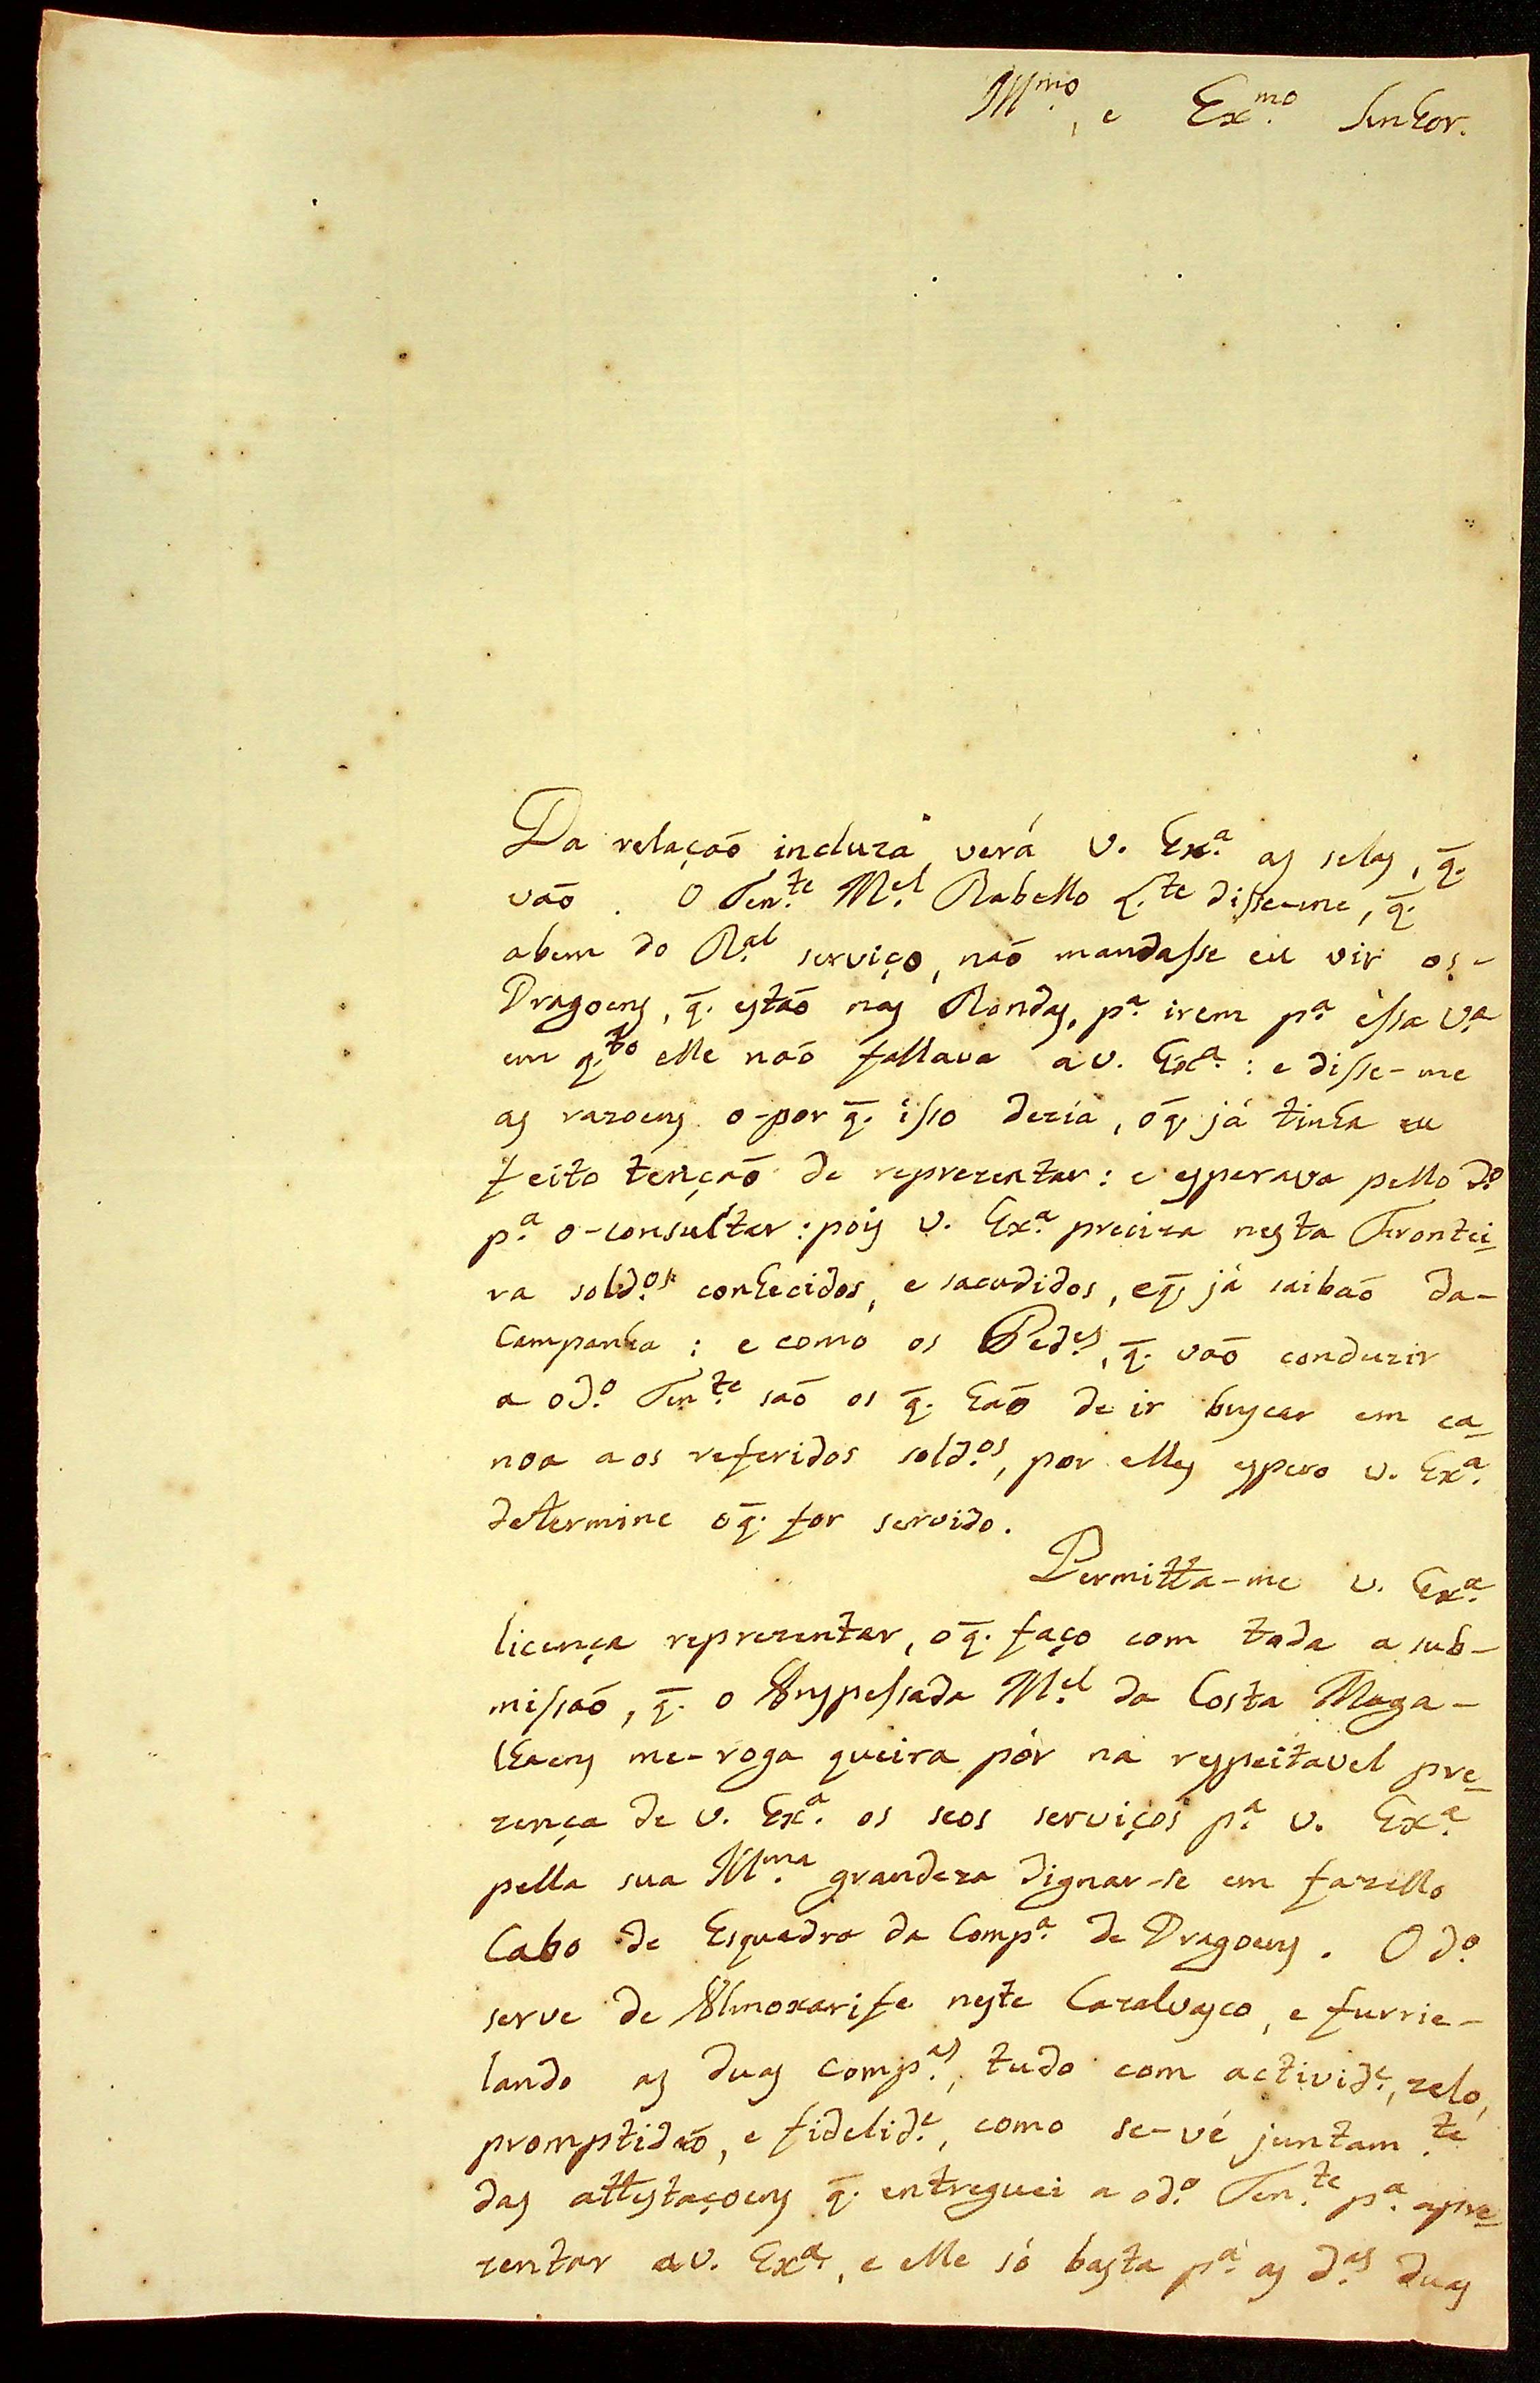 Illmo., e Exmo. Senhor.
Da relaçaõ incluza verá V. Exa. as selas, q̄.
vaõ. O Tente. Mel. Rabello Le. te disse-me, q̄.
abem do Ral. serviço, naõ mandasse eu vir os-
Dragoens, q̄. estaõ nas Rondas, pa. irem pa. essa Va.
em q.to elle naõ fallava a V. Exa.: e disse-me
as razoens o-por q̄. isso dezia, oq̄. já tinha eu
feito tençaõ de reprezentar: e esperava pello do.
pa. o-consultar: pois V. Exa. preciza nesta Frontei-
ra soldos. conhecidos, e sacudidos, eq̄. já saibaõ da-
Campanha: e como os Pedes., q̄. vaõ conduzir
a odo. Tente. saõ os q̄. haõ de ir buscar em ca-
noa aos referidos soldos., por elles espero V. Exa.
determine oq̄. for servido.
Permitta-me V. Exa.
licença reprezentar, oq̄. faço com toda a sub-
missaõ, q̄. o Anspessada Mel. da Costa Maga-
lhaens me-roga queira pôr na respeitavel pre-
zença de V. Exa. os seos serviços pa. V. Exa.
pella sua Illma. grandeza dignar-se em fazello
Cabo de Esquadra da Compa. de Dragoens. O do.
serve de Almoxarife neste Cazalvasco, e furrie-
lando as duas compas., tudo com actividе., zelo,
promptidaõ, e fidelide., como se-vé juntamte.
das attestaçoens q̄. entreguei a odo. Tente. pa. apre-
zentar a V. Exa., e elle só basta pa. as das. duas